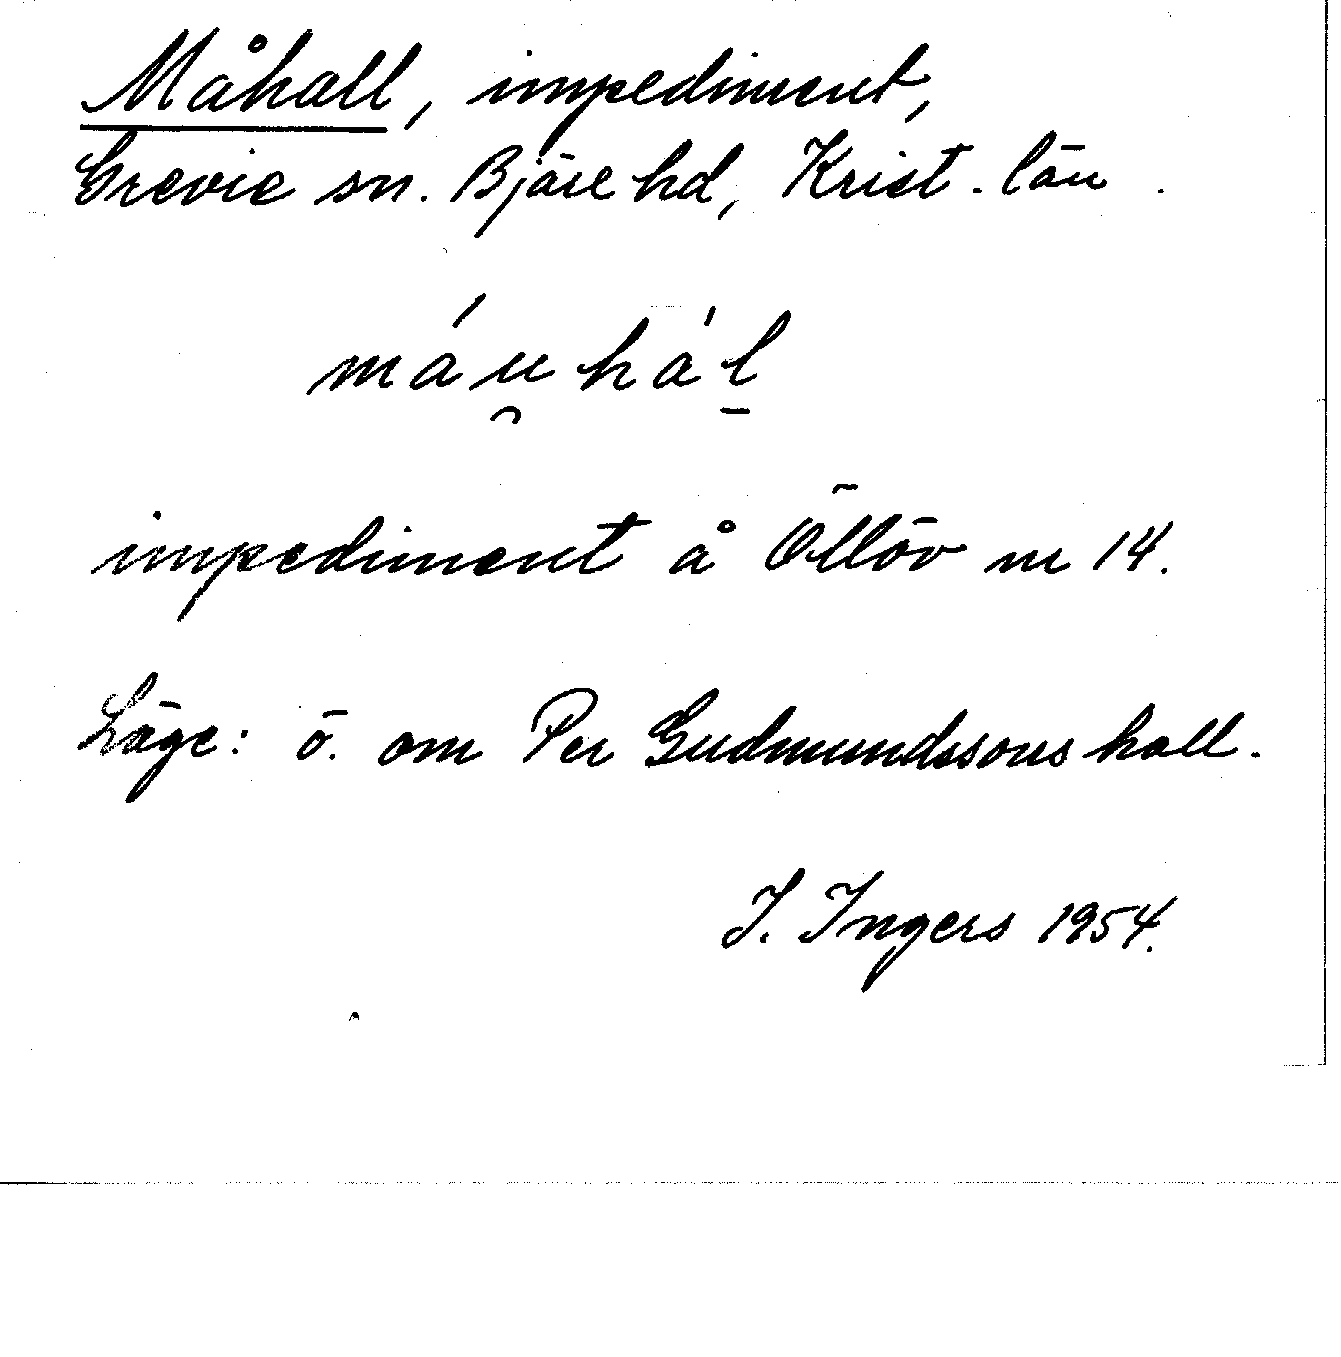 Måhall, impediment,
Grevie sn. Bjäre hd, Krist. län.
máu̯hál̠
impediment å Öllöv nr 14.
Läge: ö. om Per Gudmundssons hall.
I. Ingers 1954.